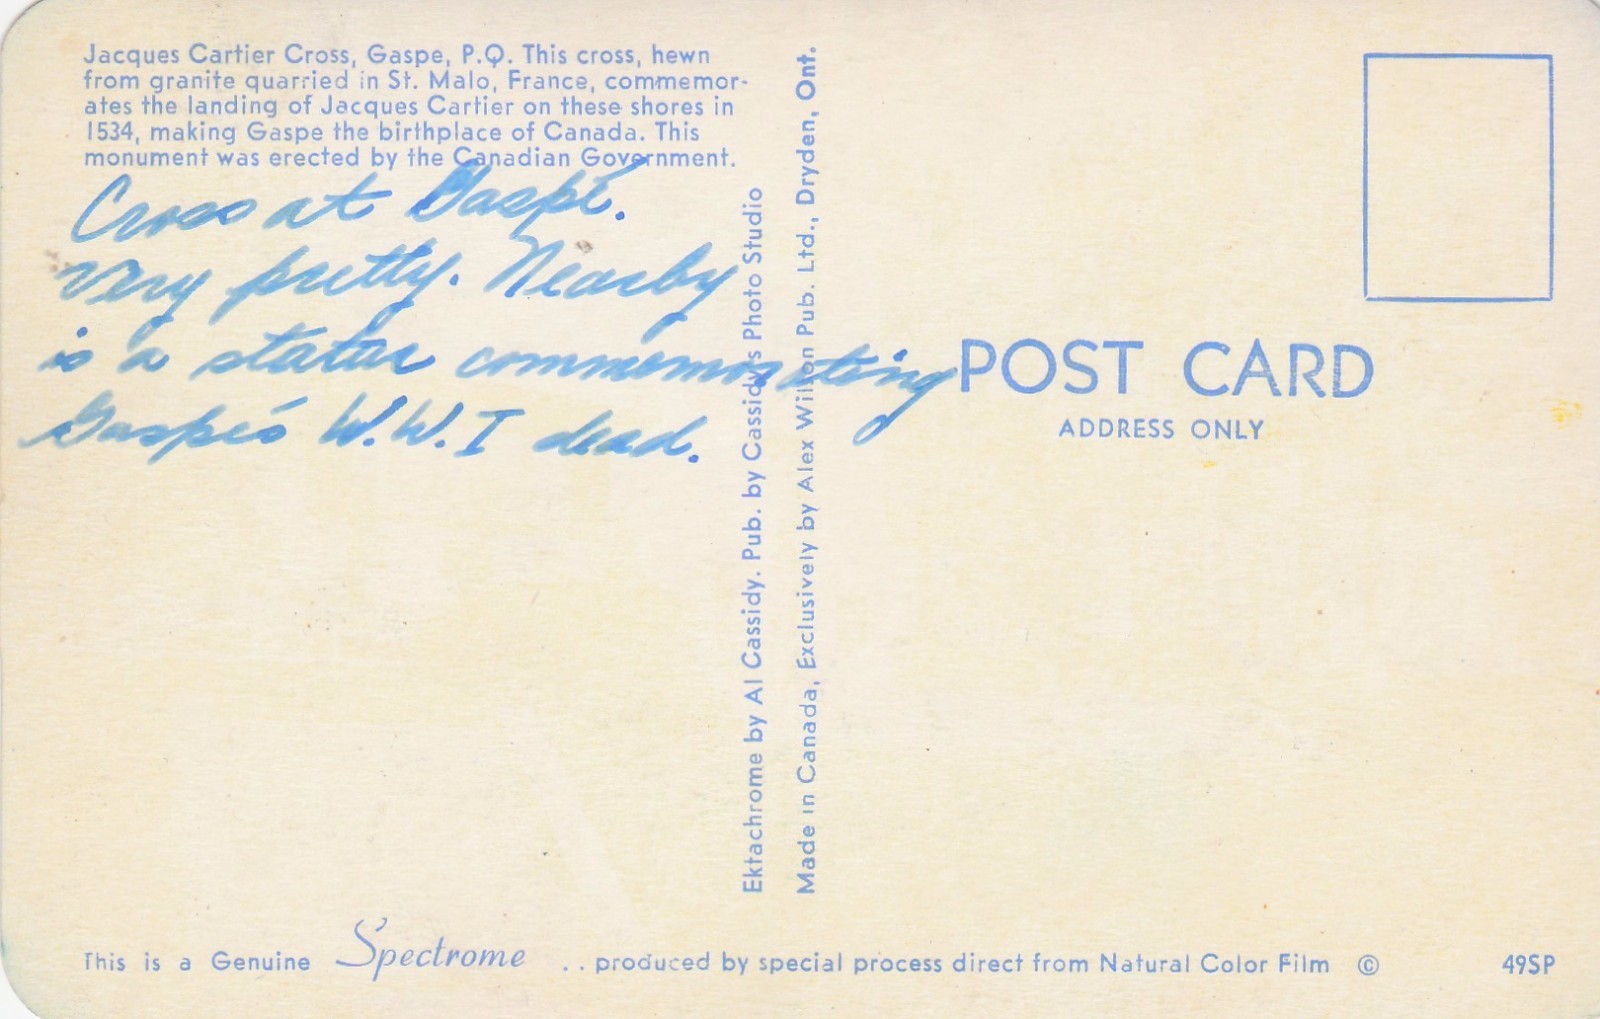 Jacques Cartier Cross, Gaspe, P.Q. This cross, hewn
from granite quarried in St. Malo, France, commemor-
ates the landing of Jacques Cartier on these shores in
1534, making Gaspe the birthplace of Canada. This
monument was erected by the Canadian Government.
Cross at Gaspé.
Very pretty. Nearby
is a statue commemorating
Gaspé's W.W.I dead.
Ektachrome by Al Cassidy. Pub. by Cassidy's Photo Studio
Made in Canada, Exclusively by Alex Wilson Pub. Ltd., Dryden, Ont.
POST CARD
ADDRESS ONLY
This is a Genuine Spectrome .. produced by special process direct from Natural Color Film ©
49SP